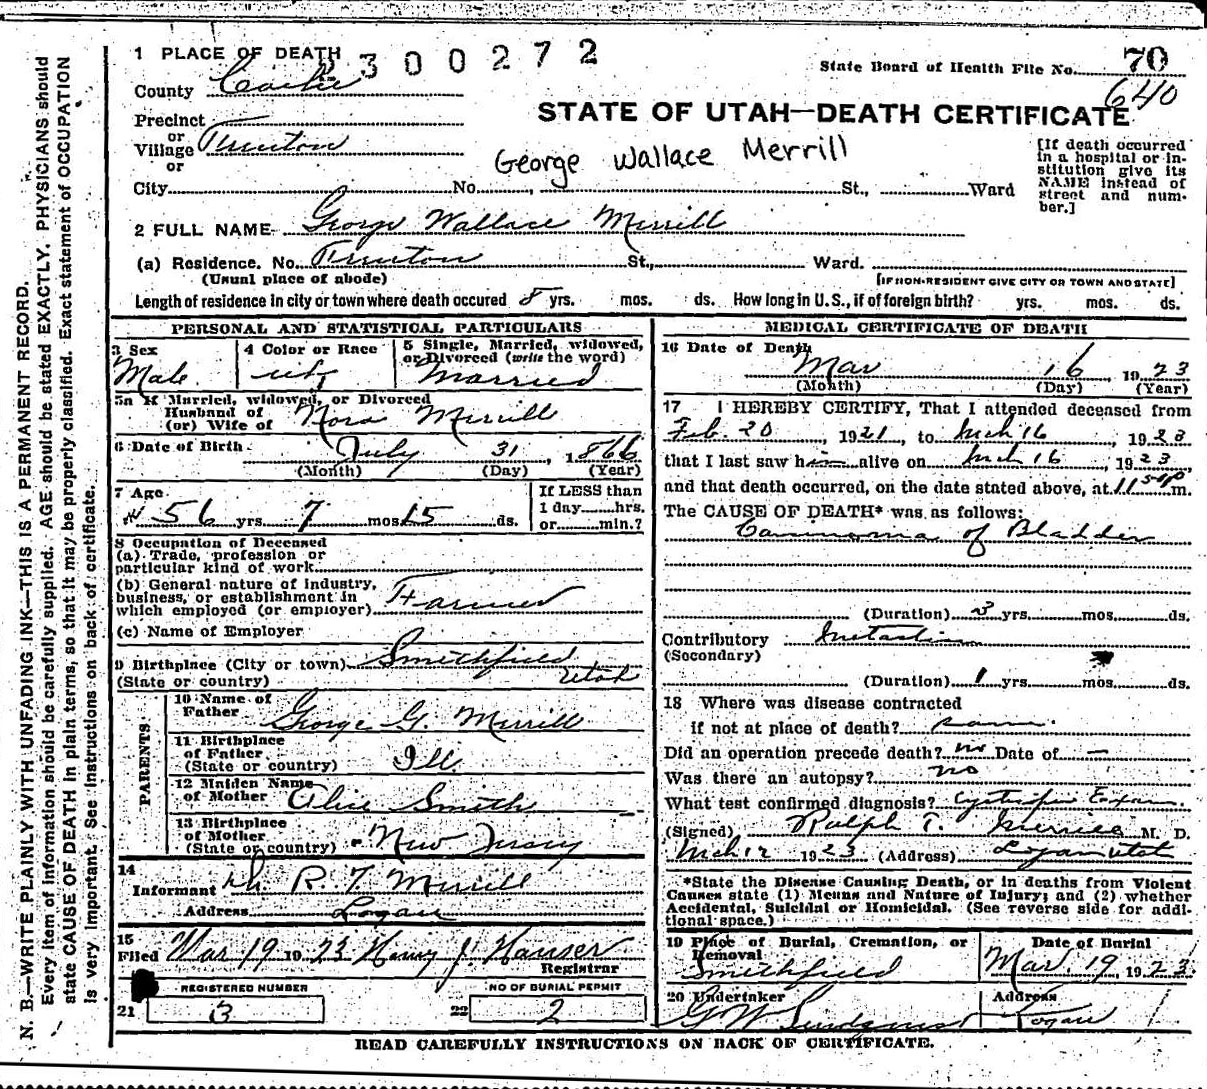 1 PLACE OF DEATH
2300272
State Board of Health File No. 70
640
County Cache
STATE OF UTAH—DEATH CERTIFICATE
Precinct
or
Village Trenton
or
George Wallace Merrill
City No. , St., Ward
[If death occurred in a hospital or in-
stitution give its
NAME instead of
street and num-
ber.]
2 FULL NAME George Wallace Merrill
(a) Residence. No. Trenton St., Ward.
(Usual place of abode)
[IF NON-RESIDENT GIVE CITY OR TOWN AND STATE]
Length of residence in city or town where death occured 8 yrs. mos. ds. How long in U. S., if of foreign birth? yrs. mos. ds.
PERSONAL AND STATISTICAL PARTICULARS
3 Sex
Male
4 Color or Race
5 Single, Married, widowed,
or Divorced (write the word)
Married
5a If Married, widowed, or Divorced
Husband of
(or) Wife of Nora Merrill
6 Date of Birth July 31, 1866
(Month) (Day) (Year)
7 Age
56 yrs. 7 mos. 15 ds.
If LESS than
1 day hrs.
or min.?
8 Occupation of Deceased
(a) Trade, profession or
particular kind of work
(b) General nature of industry,
business, or establishment in
which employed (or employer) Farmer
(c) Name of Employer
9 Birthplace (City or town) Smithfield
(State or country) Utah
PARENTS
10 Name of
Father George G. Merrill
11 Birthplace
of Father
(State or country) Ill.
12 Maiden Name
of Mother Alice Smith
13 Birthplace
of Mother
(State or country) New Jersey
14
Informant R. T. Merrill
Address Logan
15
Filed Mar 19 1923 Henry J. Hauser
Registrar
REGISTERED NUMBER
21 3
NO OF BURIAL PERMIT
22 2
MEDICAL CERTIFICATE OF DEATH
16 Date of Death
Mar 16, 1923
(Month) (Day) (Year)
17 I HEREBY CERTIFY, That I attended deceased from
Feb. 20, 1921, to Mch 16, 1923
that I last saw him alive on Mch 16, 1923,
and that death occurred, on the date stated above, at 11 50 p m.
The CAUSE OF DEATH* was as follows:
Carcinoma of Bladder
(Duration) 3 yrs. mos. ds.
Contributory
(Secondary)
(Duration) 1 yrs. mos. ds.
18 Where was disease contracted
if not at place of death? same.
Did an operation precede death? no Date of —
Was there an autopsy? no
What test confirmed diagnosis? Exam.
(Signed) Ralph T. Merrill M. D.
1923 (Address) Logan Utah
*State the Disease Causing Death, or in deaths from Violent
Causes state (1) Means and Nature of Injury; and (2) whether
Accidental, Suicidal or Homicidal. (See reverse side for addi-
tional space.)
19 Place of Burial, Cremation, or
Removal
Smithfield
Date of Burial
Mar. 19, 1923.
20 Undertaker
G W
Address
Logan
READ CAREFULLY INSTRUCTIONS ON BACK OF CERTIFICATE.
N. B.—WRITE PLAINLY WITH UNFADING INK—THIS IS A PERMANENT RECORD.
Every item of information should be carefully supplied. AGE should be stated EXACTLY. PHYSICIANS should
state CAUSE OF DEATH in plain terms, so that it may be properly classified. Exact statement of OCCUPATION
is very important. See instructions on back of certificate.